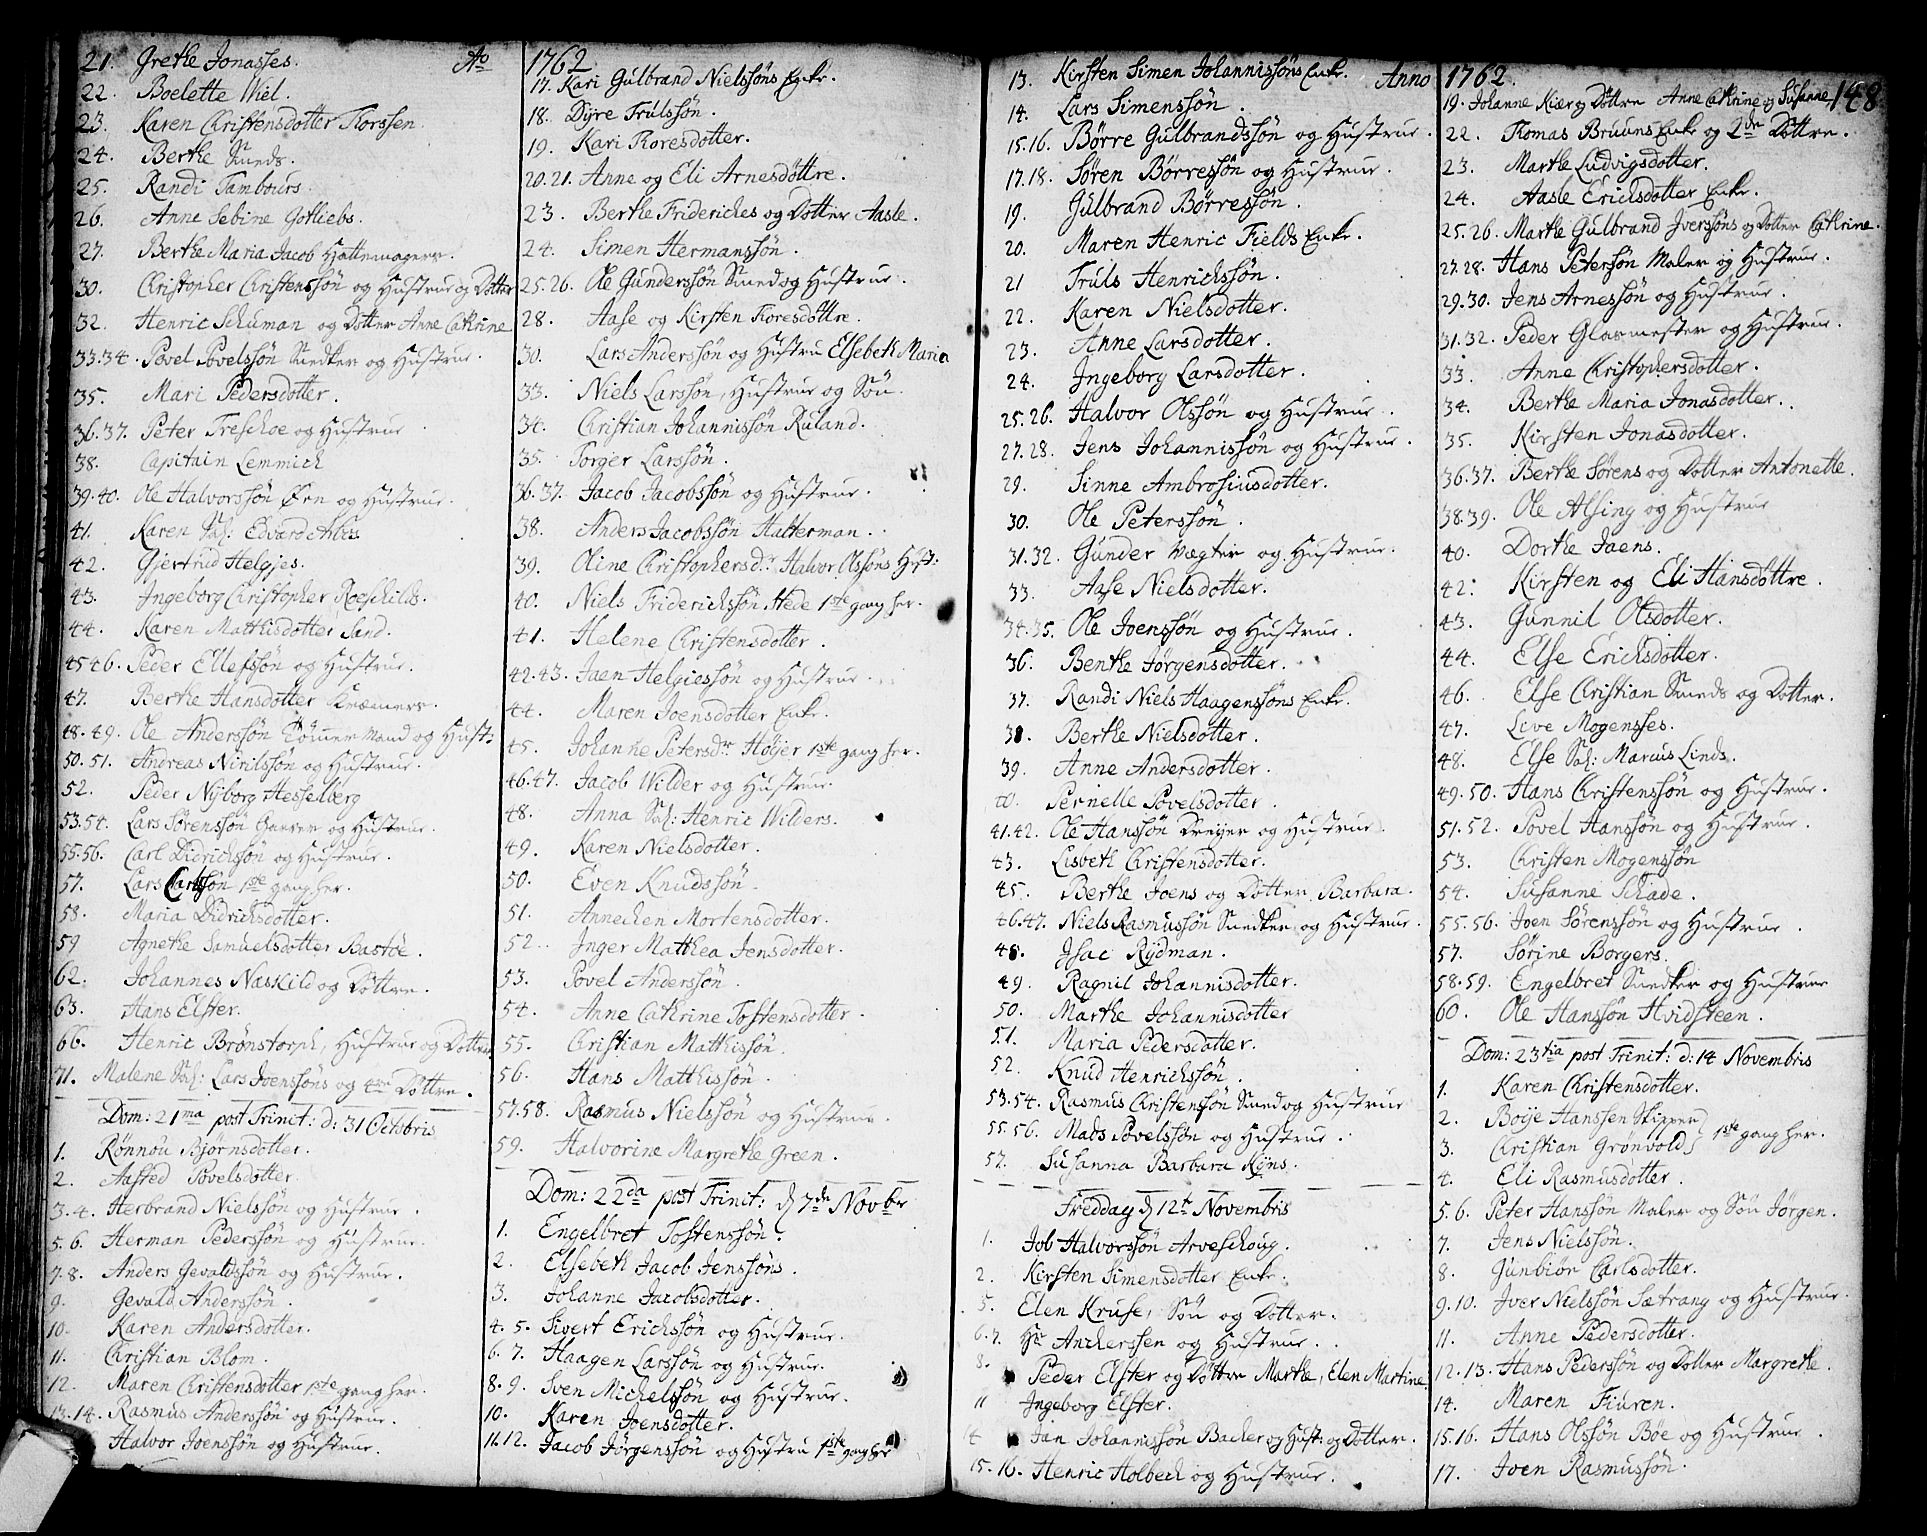 Ao 1762
21. Grethe Jonasses.
22. Boelette Wiel.
23. Karen Christensdotter Korssen
24. Berthe Smeds.
25. Randi Tambours.
26. Anne Sebine Gotliebs.
27. Berthe Maria Jacob Hattemagers.
30. Christopher Christenssøn og Hustrue og Dotter
32. Henric Schuman og Dotter Anne Cathrine
33.34. Povel Povelssøn Snedker og Hustrue.
35. Mari Pedersdotter.
36.37. Peter Treschoe og Hustrue
38. Capitain Lemmich
39.40. Ole Halvorssøn Øen og Hustrue.
41. Karen Sal: Edvard Arbos
42. Gjertrud Helgjes.
43. Ingeborg Christopher Roeschilds.
44. Karen Matthisdotter Sand.
45.46. Peder Ellefssøn og Hustrue.
47. Berthe Hansdotter Kræmmers.
48.49. Ole Anderssøn Tømmermand og Hust:
50.51. Andreas Nirilssøn og Hustrue.
52. Peder Nyborg Hesselberg
53.54. Lars Sørenssøn Garver og Hustrue.
55.56. Carl Didrichssøn og Hustrue.
57. Lars Carlssøn 1ste gang her.
58. Maria Didrichsdotter.
59 Agnethe Samuelsdotter Bastøe.
62. Johannes Næskild og Døttre.
63. Hans Elster.
66. Henric Brønstorph, Hustrue og Dotter
71. Malene Sal: Lars Joenssøns og 4re Døttre.
Dom: 21ma post Trinit: d: 31 Octobris
1. Rønnou Bjørnsdotter.
2. Aasted Povelsdotter.
3.4. Herbrand Nielssøn og Hustrue.
5.6. Herman Pederssøn og Hustrue.
7.8. Anders Gevaldssøn og Hustrue.
9. Gevald Anderssøn.
10. Karen Andersdotter.
11. Christian Blom.
12. Maren Christensdotter 1ste gang her.
13.14. Rasmus Anderssøn og Hustrue.
Halvor Joenssøn og Hustrue.
17. Kari Gulbrand Nielssøns Enke.
18. Dyre Trulssøn.
19. Kari Toresdotter.
20.21. Anne og Eli Arnesdøttre.
23. Berthe Friderichs og Dotter Aasle.
24. Simen Hermanssøn.
25.26. Ole Gunderssøn Smed og Hustrue.
28. Aase og Kirsten Toresdøttre.
30. Lars Anderssøn og Hustru Elsebeth Maria
33. Niels Larssøn, Hustrue og Søn.
34. Christian Johannissøn Ruland.
35. Torger Larssøn.
36.37. Jacob Jacobssøn og Hustrue.
38. Anders Jacobssøn Halterman.
39. Oline Christophersdr: Halvor Olssøns Hust:
40. Niels Friderichssøn Hede 1ste gang her.
41. Helene Christensdotter
42.43. Jaen Helgiessøn og Hustrue.
44. Maren Joensdotter Enke.
45. Johanne Petersdr Høyer 1ste gang her.
46.47. Jacob Wilder og Hustrue.
48. Anna Sal: Henric Wilders.
49. Karen Nielsdotter.
50. Even Knudssøn.
51. Annechen Mortensdotter.
52. Inger Matthea Jensdotter.
53. Povel Anderssøn.
54. Anne Cathrine Tostensdotter.
55. Christian Matthissøn.
56. Hans Matthissøn.
57.58. Rasmus Nielssøn og Hustrue.
59. Halvorine Margrethe Green.
Dom: 22da post Trinit: d 7de Novbr
1. Engelbret Tostenssøn.
2. Elsebeth Jacob Jenssøns.
3. Johanne Jacobsdotter.
4.5. Sivert Erichssøn og Hustrue.
6.7. Haagen Larssøn og Hustrue.
8.9. Sven Michelssøn og Hustrue.
10. Karen Joensdotter.
11.12. Jacob Jørgenssøn og Hustru 1ste gang her
Anno 1762.
148
13. Kirsten Simen Johannissøns Enke.
14. Lars Simenssøn.
15.16. Børre Gulbrandssøn og Hustrue.
17.18. Søren Børressøn og Hustrue.
19. Gulbrand Børressøn.
20. Maren Henric Fields Enke.
21 Truls Henrichssøn.
22. Karen Nielsdotter.
23. Anne Larsdotter.
24. Ingeborg Larsdotter.
25.26. Halvor Olssøn og Hustrue.
27.28. Jens Johannissøn og Hustrue.
29. Sinne Ambrosiusdotter.
30. Ole Peterssøn.
31.32. Gunder Vægter og Hustrue.
33. Aase Nielsdotter.
34.35. Ole Joenssøn og Hustrue.
36. Benthe Jørgensdotter.
37. Randi Niels Haagenssøns Enke.
38. Berthe Nielsdotter.
39. Anne Andersdotter.
40. Pernelle Povelsdotter.
41.42. Ole Hanssøn Dreyer og Hustrue.
43. Lisbeth Christensdotter.
45. Berthe Joens og Dotter Barbara.
46.47. Niels Rasmussøn Snedker og Hustrue.
48. Isac Rydman.
49. Ragnil Johannisdotter.
50. Marthe Johannisdotter
51. Maria Pedersdotter.
52. Knud Henrichssøn.
53.54. Rasmus Christenssøn Smed og Hustrue
55.56. Mads Povelssøn og Hustrue.
57. Susanna Barbara Kyns.
Freddag d 12te Novembris
1. Job Halvorssøn Arveschoug.
2. Kirsten Simensdotter Enke.
5. Elen Kruse, Søn og Dotter.
6.7. Hr Ancherssen og Hustrue.
8. Peder Elster og Døttre Marthe, Elen Martine.
11 Ingeborg Elster.
14 Jan Johannissøn Backer og Hust: og Dotter.
15.16. Henric Holbech og Hustrue.
19. Johanne Kiær og Døttre Anne Cathrine og Susanne
22. Thomas Bruuns Enke og 2de Døttre.
23. Marthe Ludvigsdotter.
24. Aasle Erichsdotter Enke.
25.26. Marthe Gulbrand Iverssøns og Dotter Cathrine.
27.28. Hans Peterssøn Maler og Hustrue.
29.30. Jens Arnessøn og Hustrue.
31.32. Peder Glasmester og Hustrue.
33. Anne Christophersdotter.
34. Berthe Maria Jonasdotter.
35. Kirsten Jonasdotter.
36.37. Berthe Sørens og Dotter Antonette.
38.39. Ole Alsing og Hustrue
40. Dorthe Jaens.
42. Kirsten og Eli Hansdøttre.
43. Gunnil Olsdotter.
44. Else Erichsdotter.
46. Else Christian Smeds og Dotter.
47. Live Mogensses.
48. Else Sal: Marcus Linds.
49.50. Hans Christenssøn og Hustrue.
51.52. Povel Hanssøn og Hustrue.
53. Christen Mogenssøn
54. Susanne Schade.
55.56. Joen Sørenssøn og Hustrue.
57. Sørine Borgers.
58.59. Engelbret Snedker og Hustrue
60. Ole Hanssøn Hvidsteen.
Dom: 23tia post Trinit: d: 14 Novembris
1. Karen Christensdotter.
2. Boye Hanssen Skipper
3. Christian Grønvold, 1ste gang her.
4. Eli Rasmusdotter.
5.6. Peter Hanssøn Maler og Søn Jørgen.
7. Jens Nielssøn.
8. Gunbiør Carlsdotter.
9.10. Iver Nielssøn Sætrang og Hustrue.
11. Anne Pedersdotter.
12.13. Hans Pederssøn og Dotter Margrethe.
14. Maren Fiuren.
15.16. Hans Olssøn Bøe og Hustrue.
17. Joen Rasmussøn.